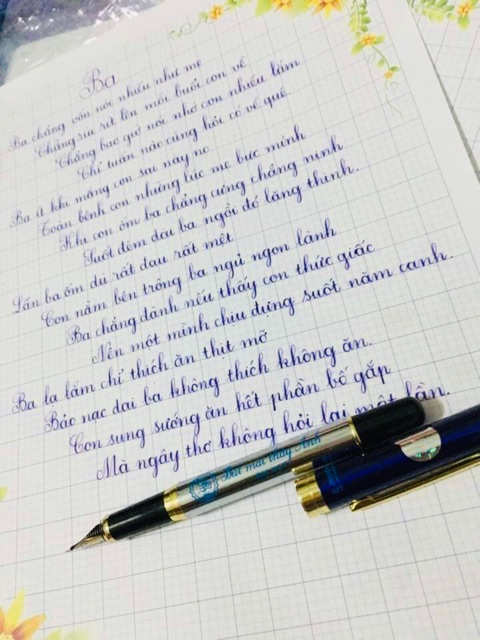 Ba
Ba chẳng vồn nói nhiều như mẹ
Chẳng ríu rít lên mỗi buổi con về
Chẳng bao giờ nói nhớ con nhiều lắm
Chỉ tuần nào cũng hỏi có về quê
Ba ít khi mắng con sai này nọ
Toàn bênh con những lúc mẹ bực mình
Khi con ốm ba chẳng cưng chẳng nịnh
Suốt đêm dài ba ngồi đó lặng thinh.
Lần ba ốm dù rất đau rất mệt
Con nằm bên trông ba ngủ ngon lành
Ba chẳng đành nếu thấy con thức giấc
Nên một mình chịu đựng suốt năm canh.
Ba lạ lắm chỉ thích ăn thịt mỡ
Bảo nạc dai ba không thích không ăn.
Con sung sướng ăn hết phần bố gắp
Mà ngây thơ không hỏi lại một lần.
Bút mài thầy Ánh